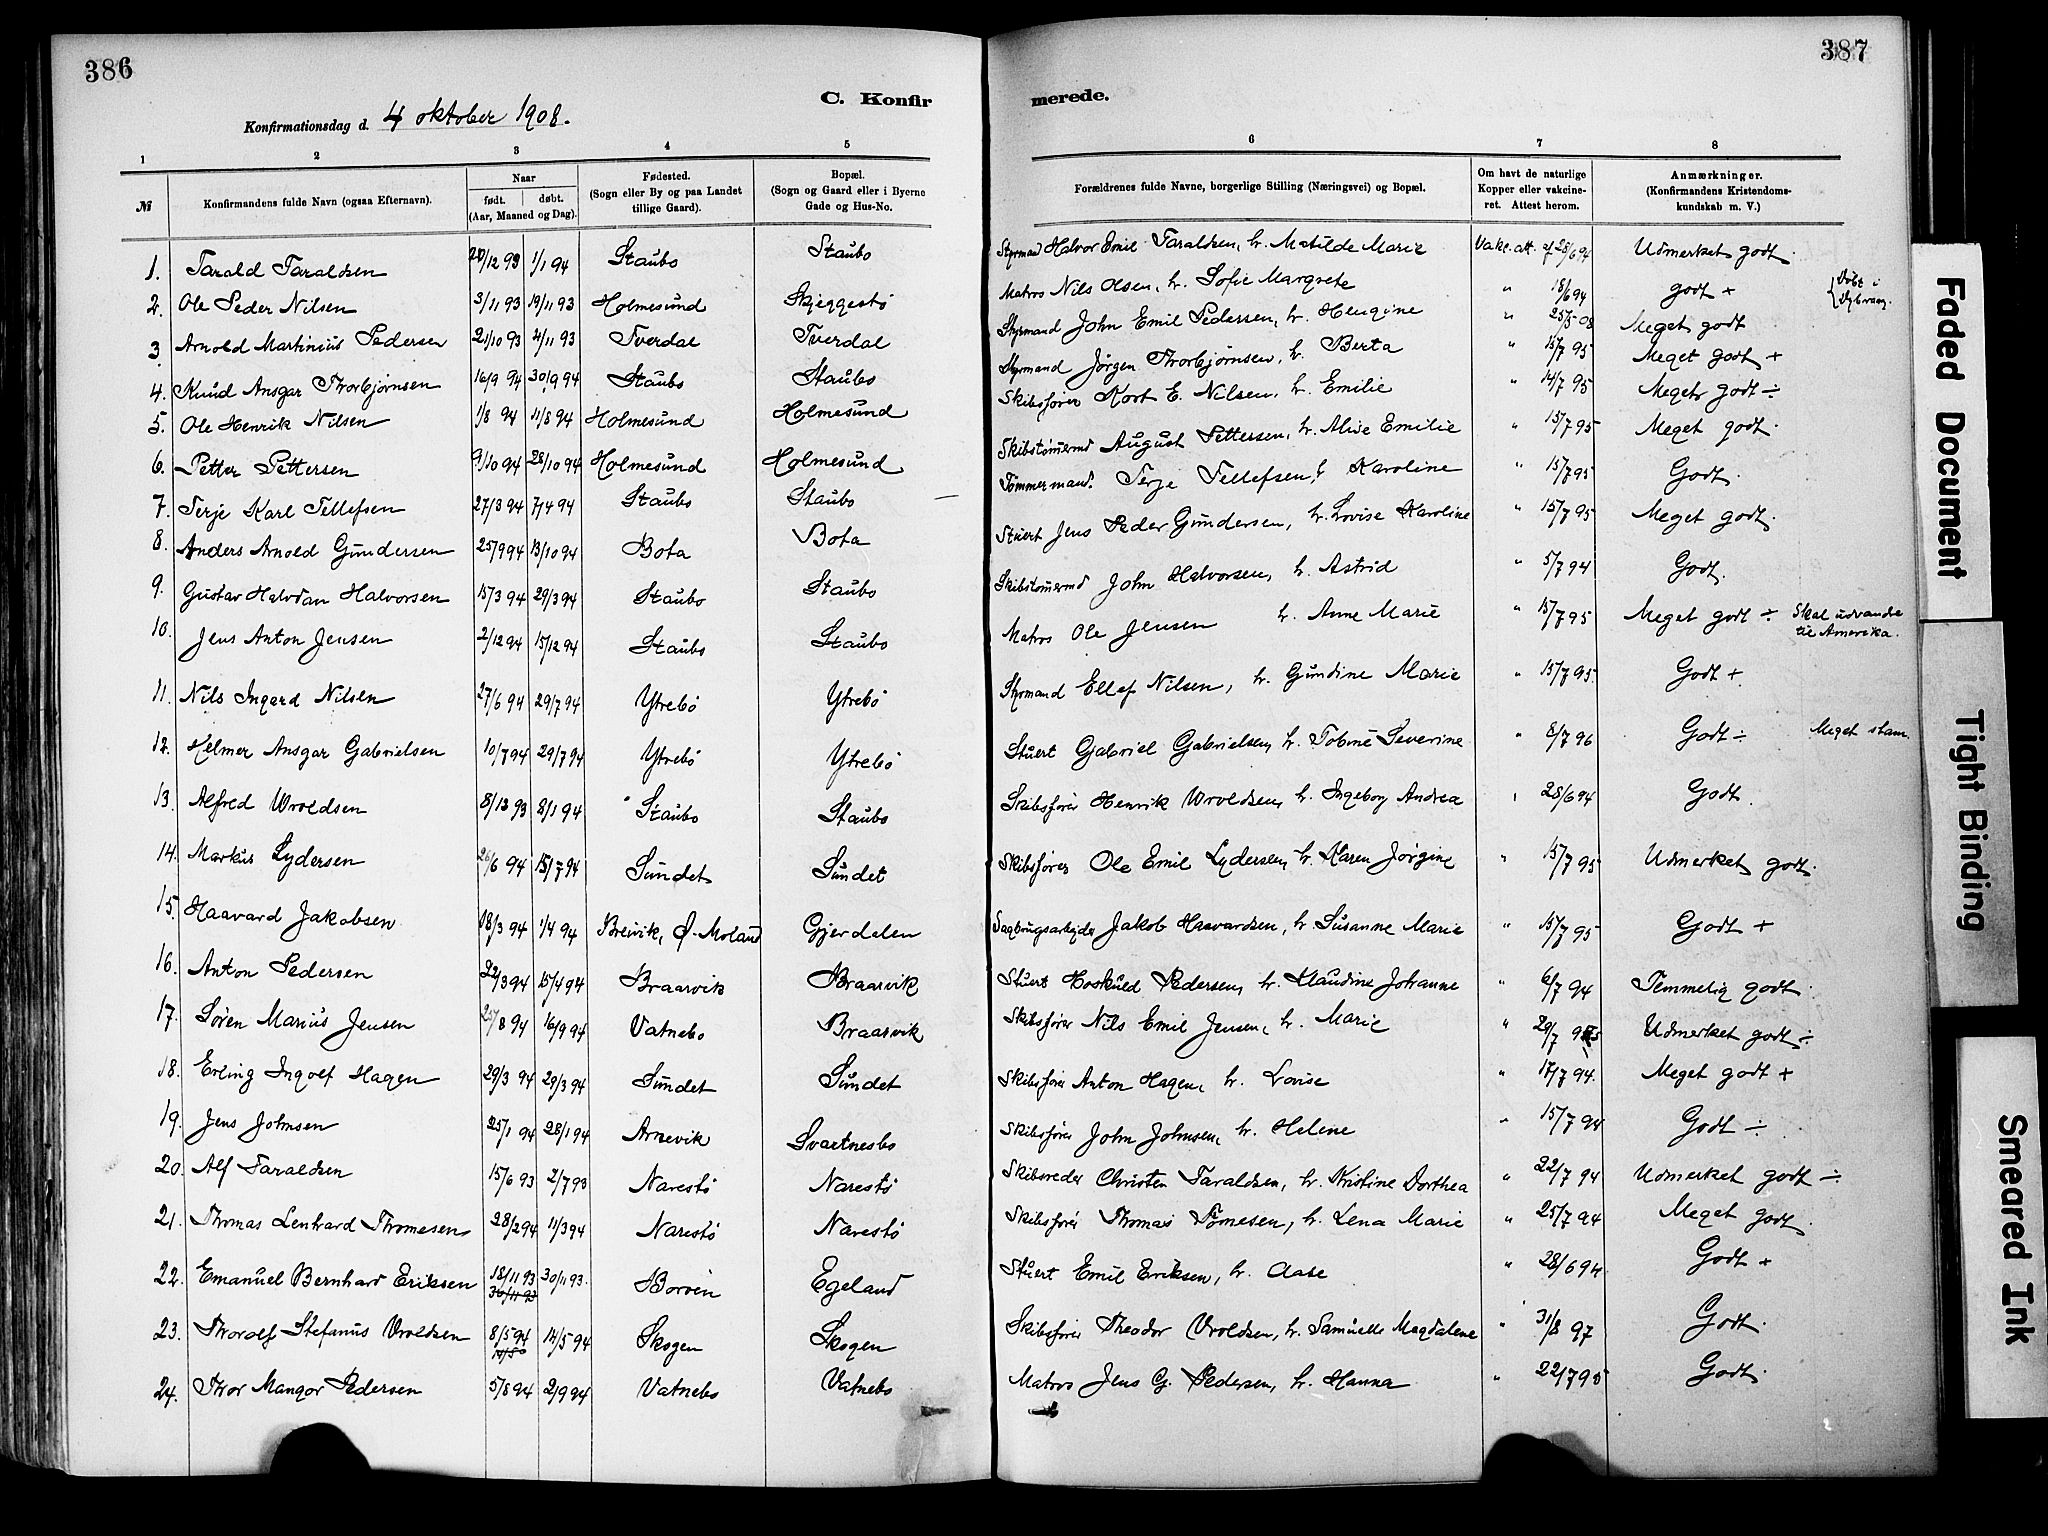 386
387
C. Konfir
merede.
Konfirmationsdag d. 4 oktober 1908.
1 2 3 4 5 6 7 8
№ Konfirmandens fulde Navn (ogsaa Efternavn). Naar født. døbt. (Aar, Maaned og Dag). Fødested. (Sogn eller By og paa Landet tillige Gaard). Bopæl. (Sogn og Gaard eller i Byerne Gade og Hus-No. Forældrenes fulde Navne, borgerlige Stilling (Næringsvei) og Bopæl. Om havt de naturlige Kopper eller vakcineret. Attest herom. Anmærkninger. (Konfirmandens Kristendomskundskab m. V.)
1. Tarald Taraldsen 20/12 93 1/1 94 Staubo Staubo Styrmand Halvor Emil Taraldsen, h. Matilde Marie Vakc. att. af 28/6 94 Udmerket godt.
2. Ole Peder Nilsen 3/11 93 19/11 93 Holmesund Skjeggestø Matros Nils Olsen, h. Sofie Margrete " 18/6 94 godt + Døbt i Dybvaag.
3 Arnold Martinius Pedersen 21/10 93 4/11 93 Tverdal Tverdal Styrmand John Emil Pedersen, h. Hengine " 25/5 08 Meget godt
4. Knud Ansgar Thorbjørnsen 16/9 94 30/9 94 Staubo Staubo Styrmand Jørgen Thorbjørnsen, h. Berta " 15/7 95 Meget godt +
5. Ole Henrik Nilsen 1/8 94 11/8 94 Holmesund Holmesund Skibsfører Kort E. Nilsen, h. Emilie " 14/7 95 Meget godt ÷
6. Petter Pettersen 9/10 94 28/10 94 Holmesund Holmesund Skibstømermd August Pettersen, h. Alise Emilie " 15/7 95 Meget godt.
7. Terje Karl Tellefsen 27/3 94 7/4 94 Staubo Staubo Tømmermand. Terje Tellefsen, h Karoline " 15/7 95 Godt.
8. Anders Arnold Gundersen 25/9 94 13/10 94 Bota Bota Stuert Jens Peder Gundersen, h. Lovise Karoline " 15/7 95 Meget godt.
9. Gustav Halvdan Halvorsen 15/3 94 29/3 94 Staubo Staubo Skibstømermd John Halvorsen, h. Astrid " 5/7 94 Godt.
10. Jens Anton Jensen 2/12 94 15/12 94 Staubo Staubo Matros Ole Jensen h. Anne Marie " 15/7 95 Meget godt ÷ Skal udvandre til Amerika.
11. Nils Ingard Nilsen 27/6 94 29/7 94 Ytrebø Ytrebø Styrmand Ellef Nilsen, h. Gundine Marie " 15/7 95. Godt +
12. Helmer Ansgar Gabrielsen 10/7 94 29/7 94 Ytrebø Ytrebø Stuert Gabriel Gabrielsen, h. Tobine Severine " 8/7 96 Godt ÷ Meget stam.
13. Alfred Wroldsen 8/12 93 8/1 94 Staubo Staubo Skibsfører Henrik Wroldsen, h. Ingeborg Andrea " 28/6 94 Godt.
14. Markus Lydersen 26/6 94 15/7 94 Sundet Sundet Skibsfører Ole Emil Lydersen, h. Karen Jørgine " 15/7 95 Udmerket godt.
15. Haavard Jakobsen 18/3 94 1/4 94 Breivik, Ø. Moland Gjerdalen Sagbrugsarbejder Jakob Haavardsen, h. Susanne Marie " 15/7 95 Godt +
16. Anton Pedersen 22/3 94 15/4 94 Braarvik Braarvik Stuert Hoskuld Pedersen, h. Klaudine Johanne " 6/7 94 Temmelig godt.
17. Søren Marius Jensen 25/8 94 16/9 94 Vatnebo Braarvik Skibsfører Nils Emil Jensen, h. Marie " 29/7 95 Udmerket godt ÷
18. Erling Ingolf Hagen 29/3 94 29/3 94 Sundet Sundet Skibsfører Anton Hagen, h. Lovise " 17/7 94. Meget godt +
19. Jens Johnsen 25/1 94 28/1 94 Arnevik Svartnesbo Skibsfører John Johnsen, h. Helene " 15/7 94 Godt ÷
20. Alf Taraldsen 15/6 93 2/7 93 Narestø Narestø Skibsreder Christen Taraldsen, h. Kristine Dorthea " 22/7 94 Udmerket godt ÷
21. Thomas Lenhard Thomesen 28/2 94 11/3 94 Narestø Narestø Skibsfører Thomas Tomesen, h. Lena Marie " 25/7 94 Meget godt.
22. Emanuel Bernhard Eriksen 18/11 93 30/11 93 30/11 93. Borøen Egeland Stuert Emil Eriksen, h. Aase " 28/6 94 Godt +
23. Thorolf Stefanus Vroldsen 8/5 94 14/5 94 Skogen Skogen Skibsfører Theodor Vroldsen, h. Samuelle Magdalene " 31/8 97 Godt.
24. Thor Mangor Pedersen 5/8 94 2/9 94 Vatnebo Vatnebo Matros Jens G. Pedersen, h. Hanna " 22/7 95 Godt.
Faded Document
Tight Binding
Smeared Ink